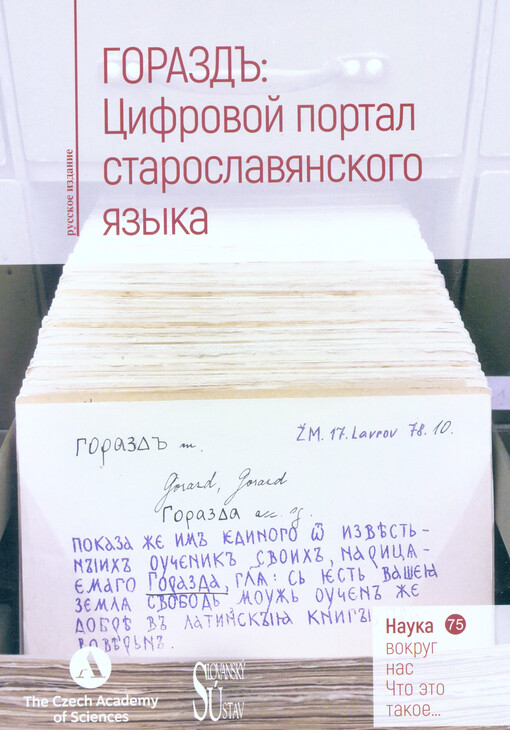 русское издание
ГОРАЗДЪ:
Цифровой портал
старославянского
языка
гораздъ m.
ŽM. 17. Lavrov 78. 10.
Gorazd, Gorazd
горазда acc. sg.
показа же имъ ѥдиного ѿ извѣсть-
нъиихъ оученикъ своихъ, нарица-
ѥмаго Горазда, гл҃а: сь ѥсть вашеꙗ
землѧ свободь моужь оученъ же
добрѣ въ латиньскъиꙗ книгъи
Наука 75
вокруг
нас
Что это
такое...
The Czech Academy
of Sciences
SLOVANSKÝ
ÚSTAV